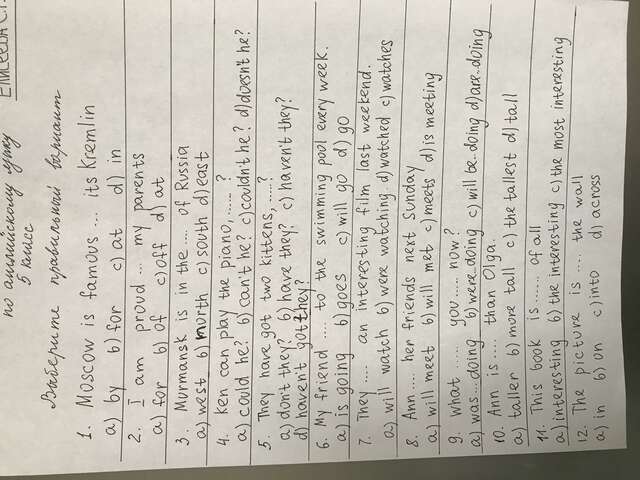 Елисеева С.Г.
по английскому языку
5 класс
Выберите правильный вариант
1. Moscow is famous ... its Kremlin
a) by b) for c) at d) in
2. I am proud ... my parents
a) for b) of c) off d) at
3. Murmansk is in the .... of Russia
a) west b) north c) south d) east
4. Ken can play the piano, ......?
a) could he? b) can't he? c) couldn't he? d) doesn't he?
5. They have got two kittens, .....?
a) don't they? b) have they? c) haven't they?
d) haven't got they?
6. My friend .... to the swimming pool every week.
a) is going b) goes c) will go d) go
7. They .... an interesting film last weekend.
a) will watch b) were watching d) watched c) watches
8. Ann .... her friends next Sunday
a) will meet b) will met c) meets d) is meeting
9. What ..... you ..... now?
a) was..doing b) were doing c) will be..doing d) are..doing
10. Ann is ..... than Olga.
a) taller b) more tall c) the tallest d) tall
11. This book is ...... of all
a) interesting b) the interesting c) the most interesting
12. The picture is .... the wall
a) in b) on c) into d) across